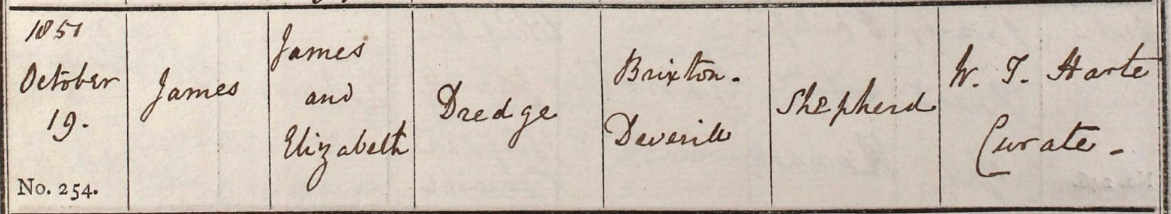 1851
October
19.
No. 254.
James
James
and
Elizabeth
Dredge
Brixton.
Deverill
Shepherd
W. T. Harte
Curate.